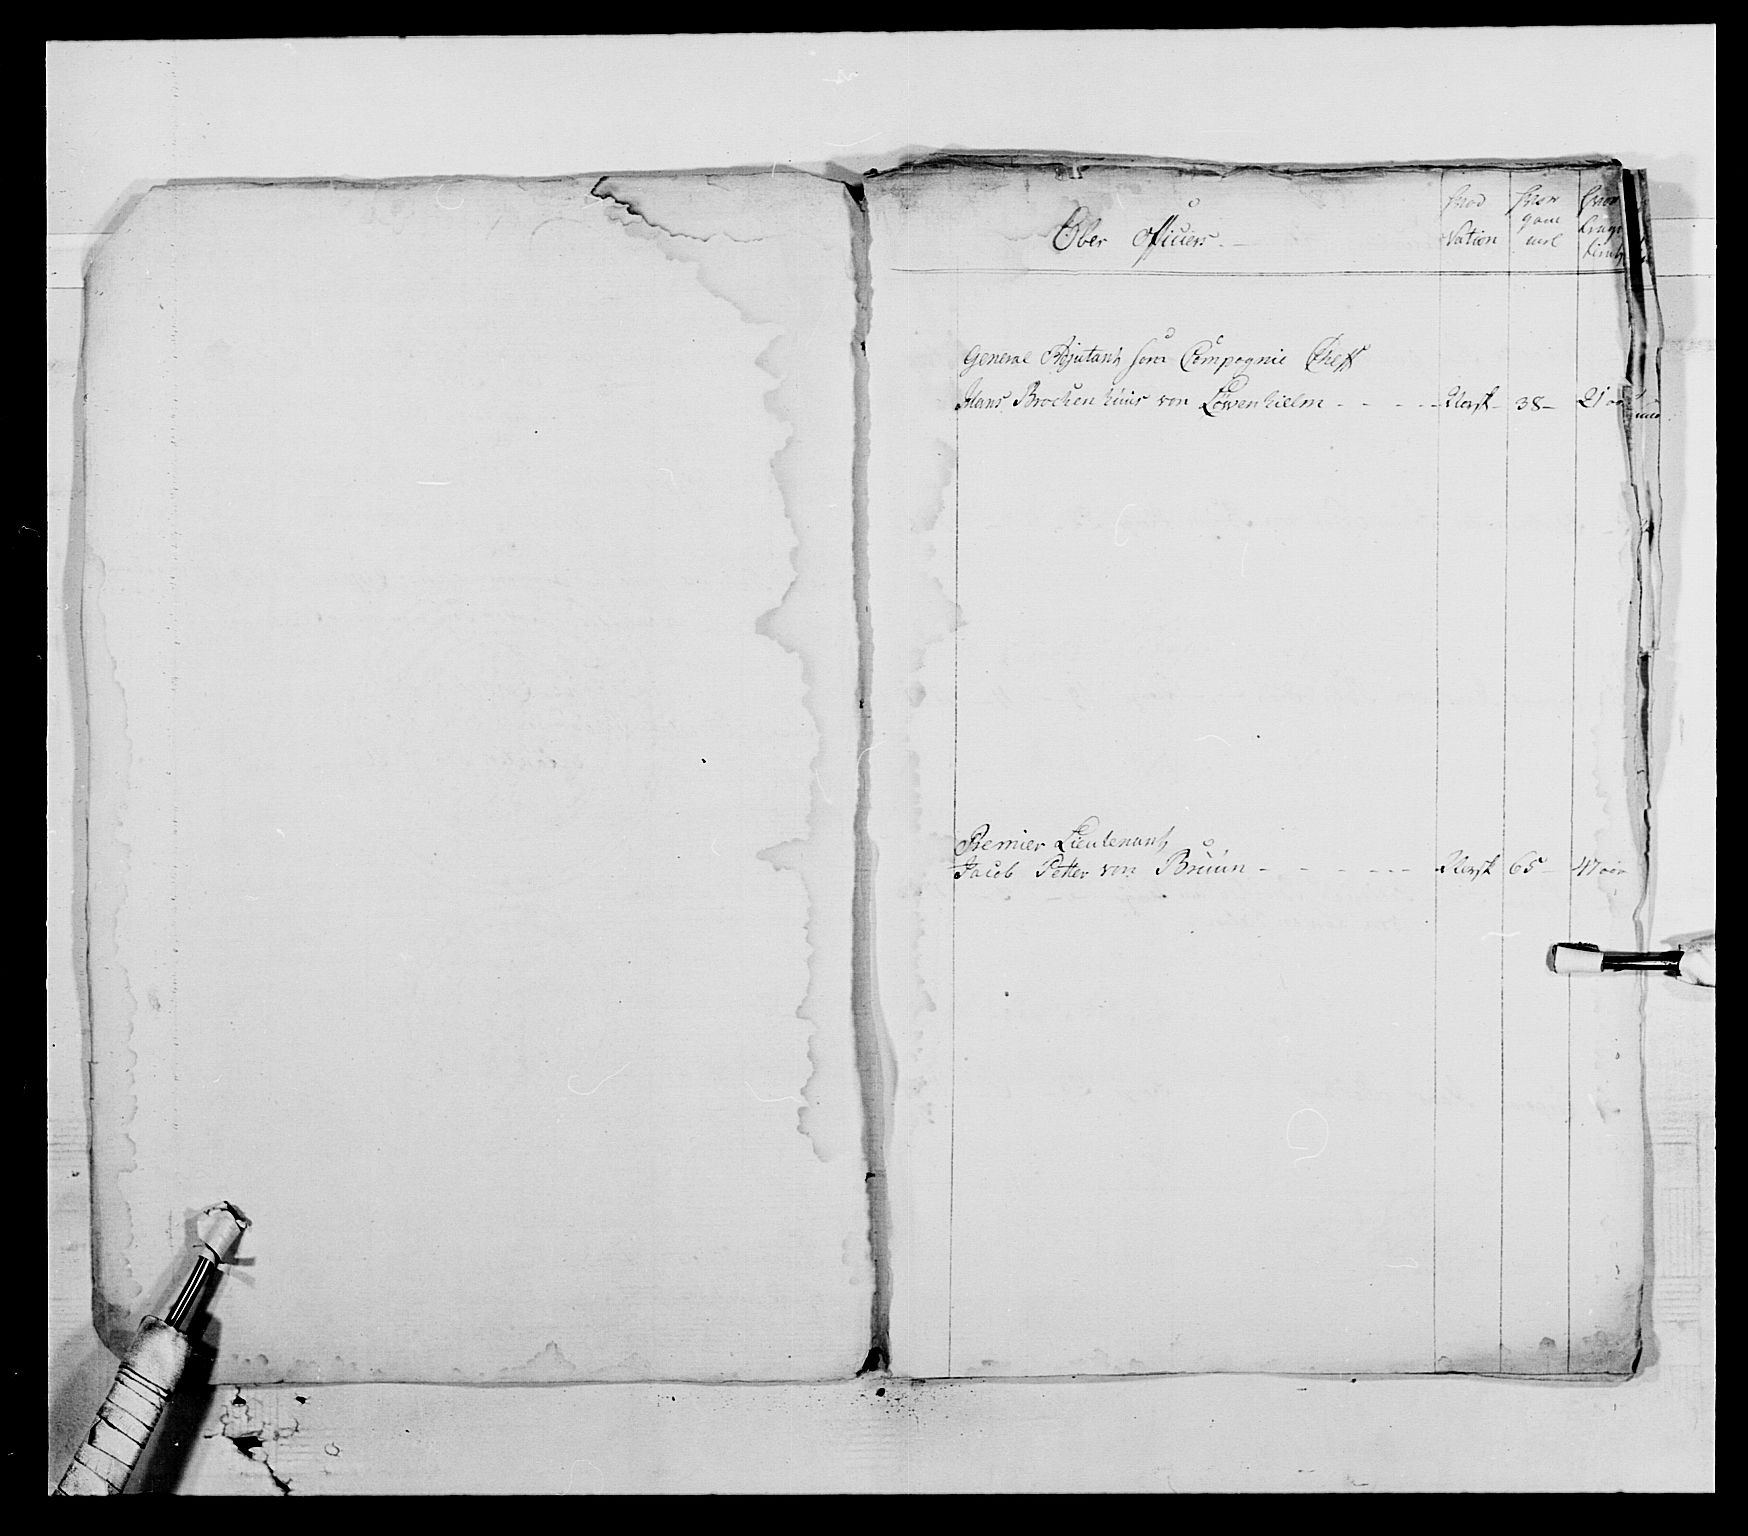 Ober Officiers. -
Hvad Nation
Hvor gam mel
Hvor Lenge tient
General Adjutant som Compagnie Cheff
Hans Brochenhuus von Löwenhielm - - - - - Norsk - 38 - 21 aar
Premier Lieutenant
Jacob Petter von Bruun - - - - - - Norsk 65 - 47 aar